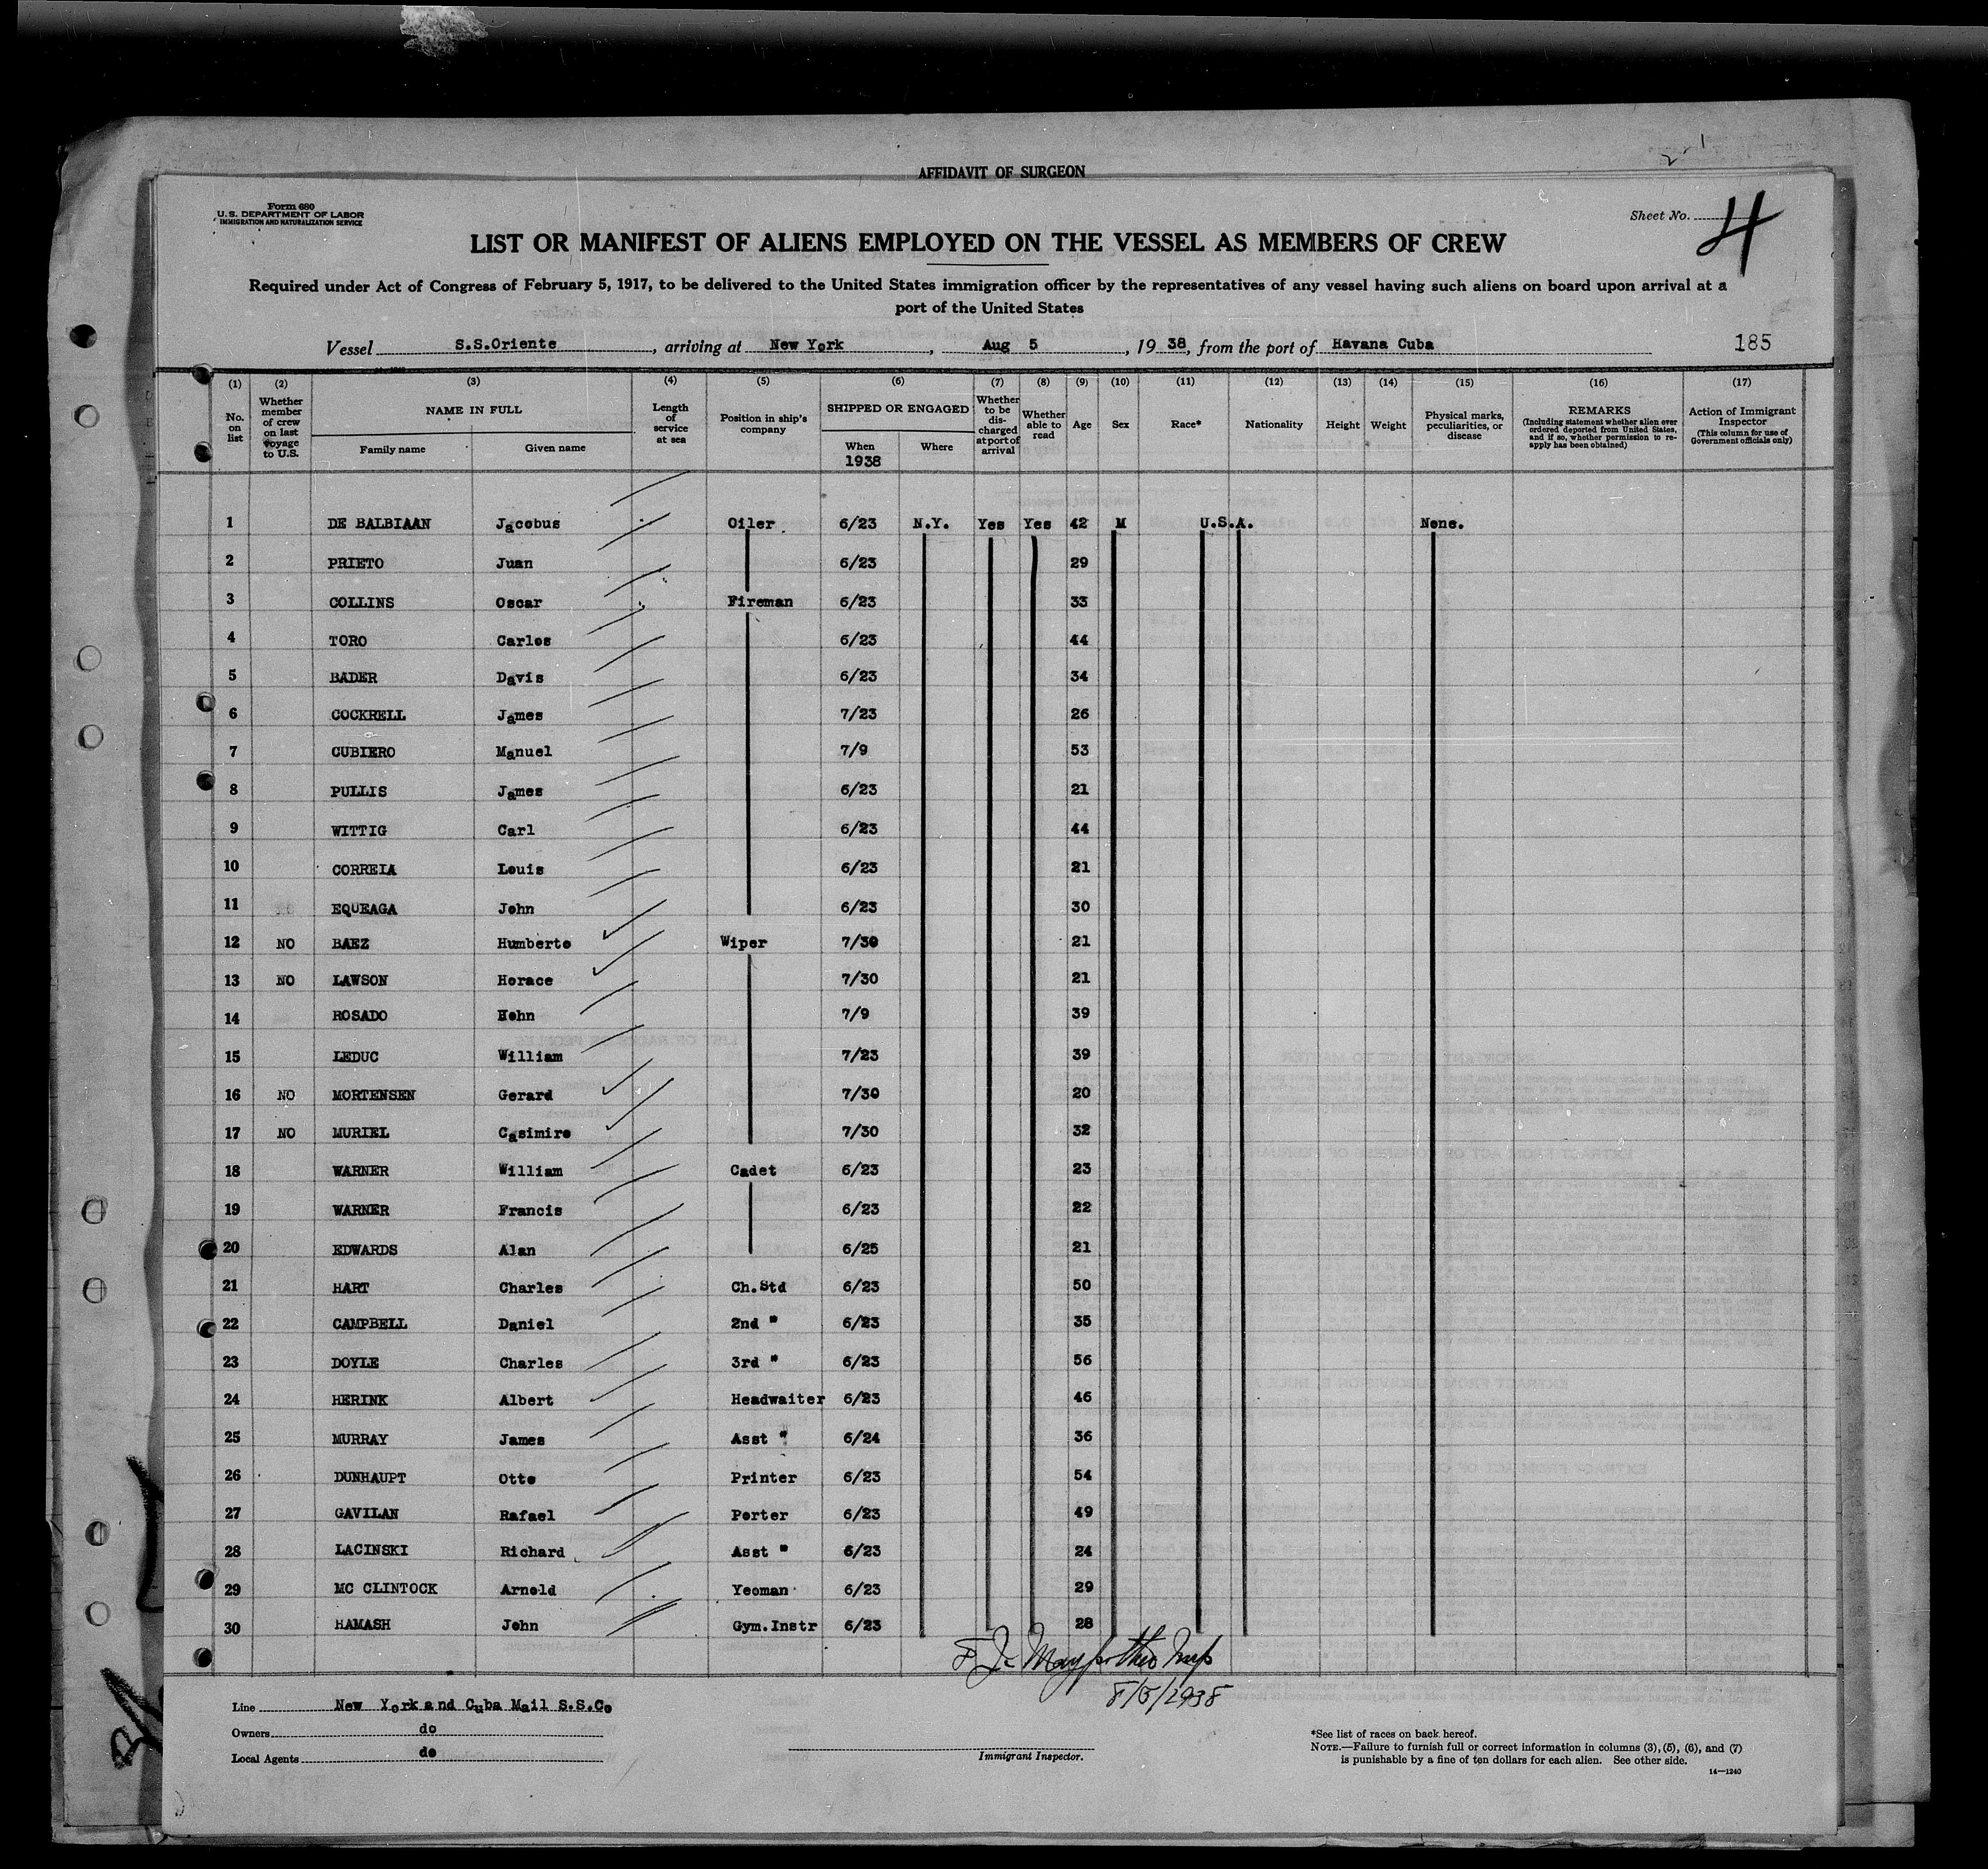 AFFIDAVIT OF SURGEON
Form 680
U.S. DEPARTMENT OF LABOR
IMMIGRATION AND NATURALIZATION SERVICE
Sheet No. 4
LIST OR MANIFEST OF ALIENS EMPLOYED ON THE VESSEL AS MEMBERS OF CREW
Required under Act of Congress of February 5, 1917, to be delivered to the United States immigration officer by the representatives of any vessel having such aliens on board upon arrival at a
port of the United States
Vessel S.S.Oriente, arriving at New York, Aug 5, 1938, from the port of Havana Cuba 185
(1) (2) (3) (4) (5) (6) (7) (8) (9) (10) (11) (12) (13) (14) (15) (16) (17)
No. on list
Whether member of crew on last voyage to U.S.
NAME IN FULL
Family name
Given name
Length of service at sea
Position in ship's company
SHIPPED OR ENGAGED
When
1938
Where
Whether to be discharged at port of arrival
Whether able to read
Age
Sex
Race*
Nationality
Height
Weight
Physical marks, peculiarities, or disease
REMARKS
(Including statement whether alien ever ordered deported from United States, and if so, whether permission to re-apply has been obtained)
Action of Immigrant Inspector
(This column for use of Government officials only)
1 DE BALBIAAN Jacobus Oiler 6/23 N.Y. Yes Yes 42 M U.S.A. None.
2 PRIETO Juan 6/23 29
3 COLLINS Oscar Fireman 6/23 33
4 TORO Carlos 6/23 44
5 BADER Davis 6/23 34
6 COCKRELL James 7/23 26
7 CUBIERO Manuel 7/9 53
8 PULLIS James 6/23 21
9 WITTIG Carl 6/23 44
10 CORREIA Louis 6/23 21
11 EQUEAGA John 6/23 30
12 NO BAEZ Humberto Wiper 7/30 21
13 NO LAWSON Horace 7/30 21
14 ROSADO Hohn 7/9 39
15 LEDUC William 7/23 39
16 NO MORTENSEN Gerard 7/30 20
17 NO MURIEL Casimiro 7/30 32
18 WARNER William Cadet 6/23 23
19 WARNER Francis 6/23 22
20 EDWARDS Alan 6/25 21
21 HART Charles Ch.Std 6/23 50
22 CAMPBELL Daniel 2nd " 6/23 35
23 DOYLE Charles 3rd " 6/23 56
24 HERINK Albert Headwaiter 6/23 46
25 MURRAY James Asst " 6/24 36
26 DUNHAUPT Otto Printer 6/23 54
27 GAVILAN Rafael Porter 6/23 49
28 LACINSKI Richard Asst " 6/23 24
29 MC CLINTOCK Arnold Yeoman 6/23 29
30 HAMASH John Gym.Instr 6/23 28
8/5/1938
Line New York and Cuba Mail S.S.Co
Owners do
Local Agents do
Immigrant Inspector.
*See list of races on back hereof.
NOTE.—Failure to furnish full or correct information in columns (3), (5), (6), and (7)
is punishable by a fine of ten dollars for each alien. See other side.
14—1240